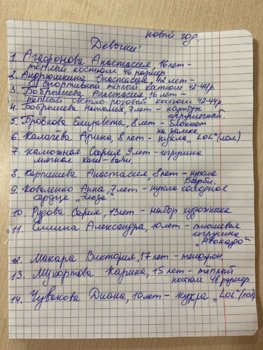 новый год
Девочки!
1. Агафонова Анастасия 16 лет -
тёплый костюм 46 размер
2. Андрюшкина Анастасия, 12 лет -
спортивный тёплый костюм 42-44р.
3. Бобрышева Анастасия, 16 лет -
тёплый светло-розовый костюм 42-44р.
4. Бобрышева Наталия 7 лет -
5. Бровкова Елизавета, 8 лет - блокнот
на замке
6. Колачёва Арина 8 лет - кукла "LOL" (лол)
7. Калюжная София 9 лет - игрушка
мягкая Хаги-Ваги.
8. Карпишева Анастасия, 8 лет - кукла
Барби
9. Коваленко Анна, 7 лет - кукла
сердце "Лиза"
10. Рудова София, 13 лет - набор художника
11. Сёмина Александра, 10 лет - плюшевая
игрушка
"Авокадо"
12. Макара Виктория, 17 лет - телефон
13. Мухортова Карина, 15 лет - тёплый
костюм 48 размер
14. Чувакова Диана, 10 лет - кукла "LOL" (лол)